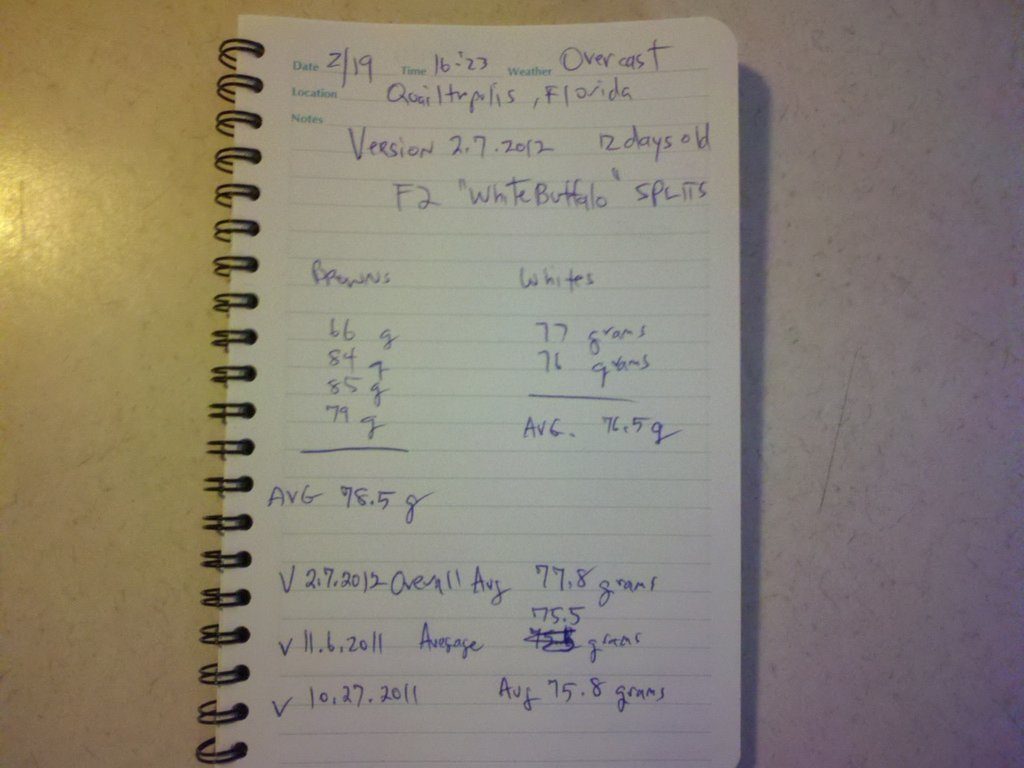 Date 2/19 Time 16:23 Weather Overcast
Location Quailtropolis, Florida
Notes
Version 2.7.2012 12 days old
F2 "White Buffalo" SPLITS
Browns Whites
66 g 77 grams
84 g 76 grams
85 g
79 g AVG. 76.5 g
AVG 78.5 g
V 2.7.2012 Overall Avg 77.8 grams
75.5
V 11.6.2011 Average grams
V 10.27.2011 Avg 75.8 grams